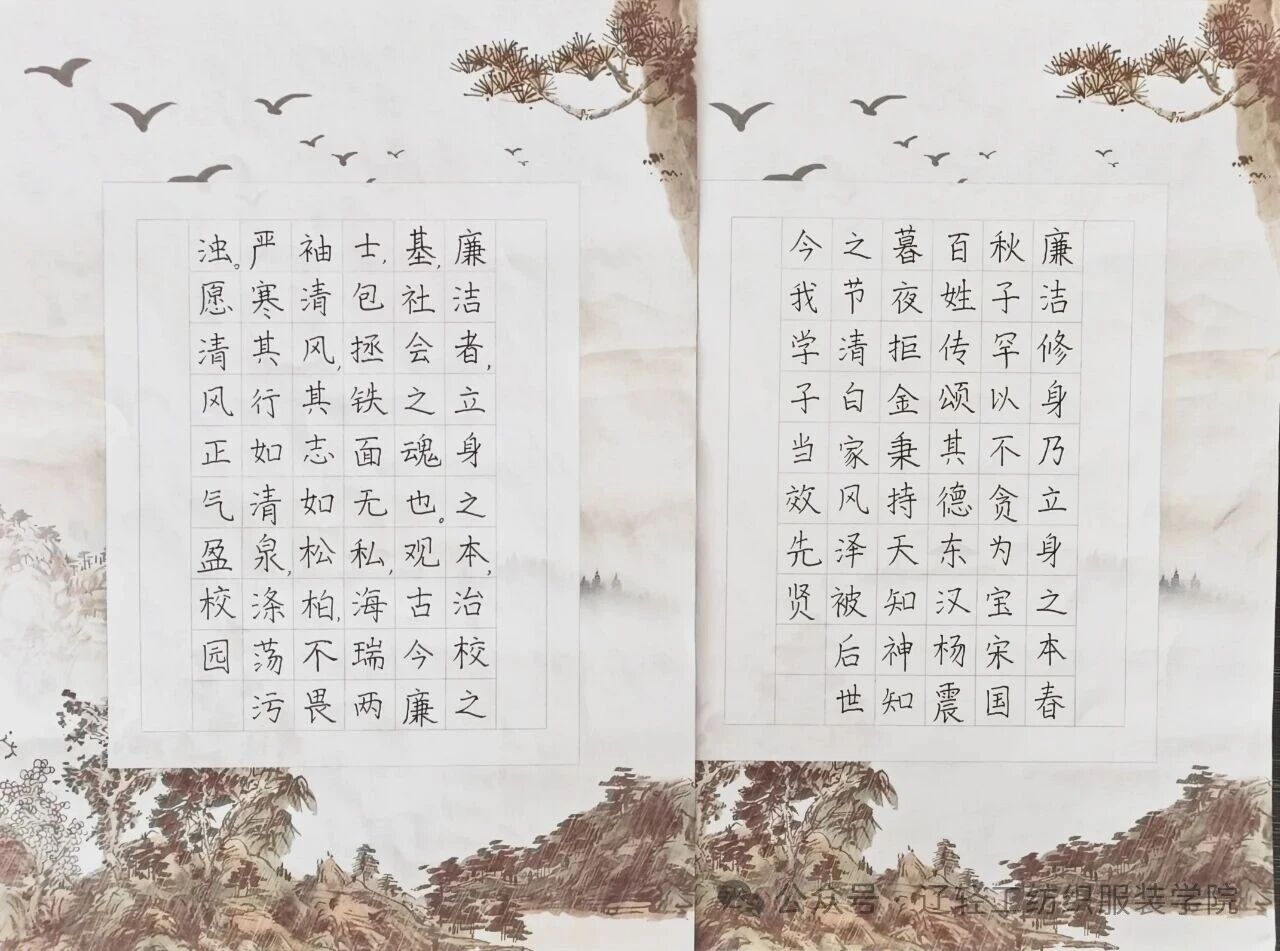 廉洁修身乃立身之本春
秋子罕以不贪为宝宋国
百姓传颂其德东汉杨震
暮夜拒金秉持天知神知
之节清白家风泽被后世
今我学子当效先贤
廉洁者,立身之本,治校之
基,社会之魂也。观古今廉
士,包拯铁面无私,海瑞两
袖清风,其志如松柏,不畏
严寒其行如清泉,涤荡污
浊。愿清风正气盈校园
公众号 · 辽轻工纺织服装学院